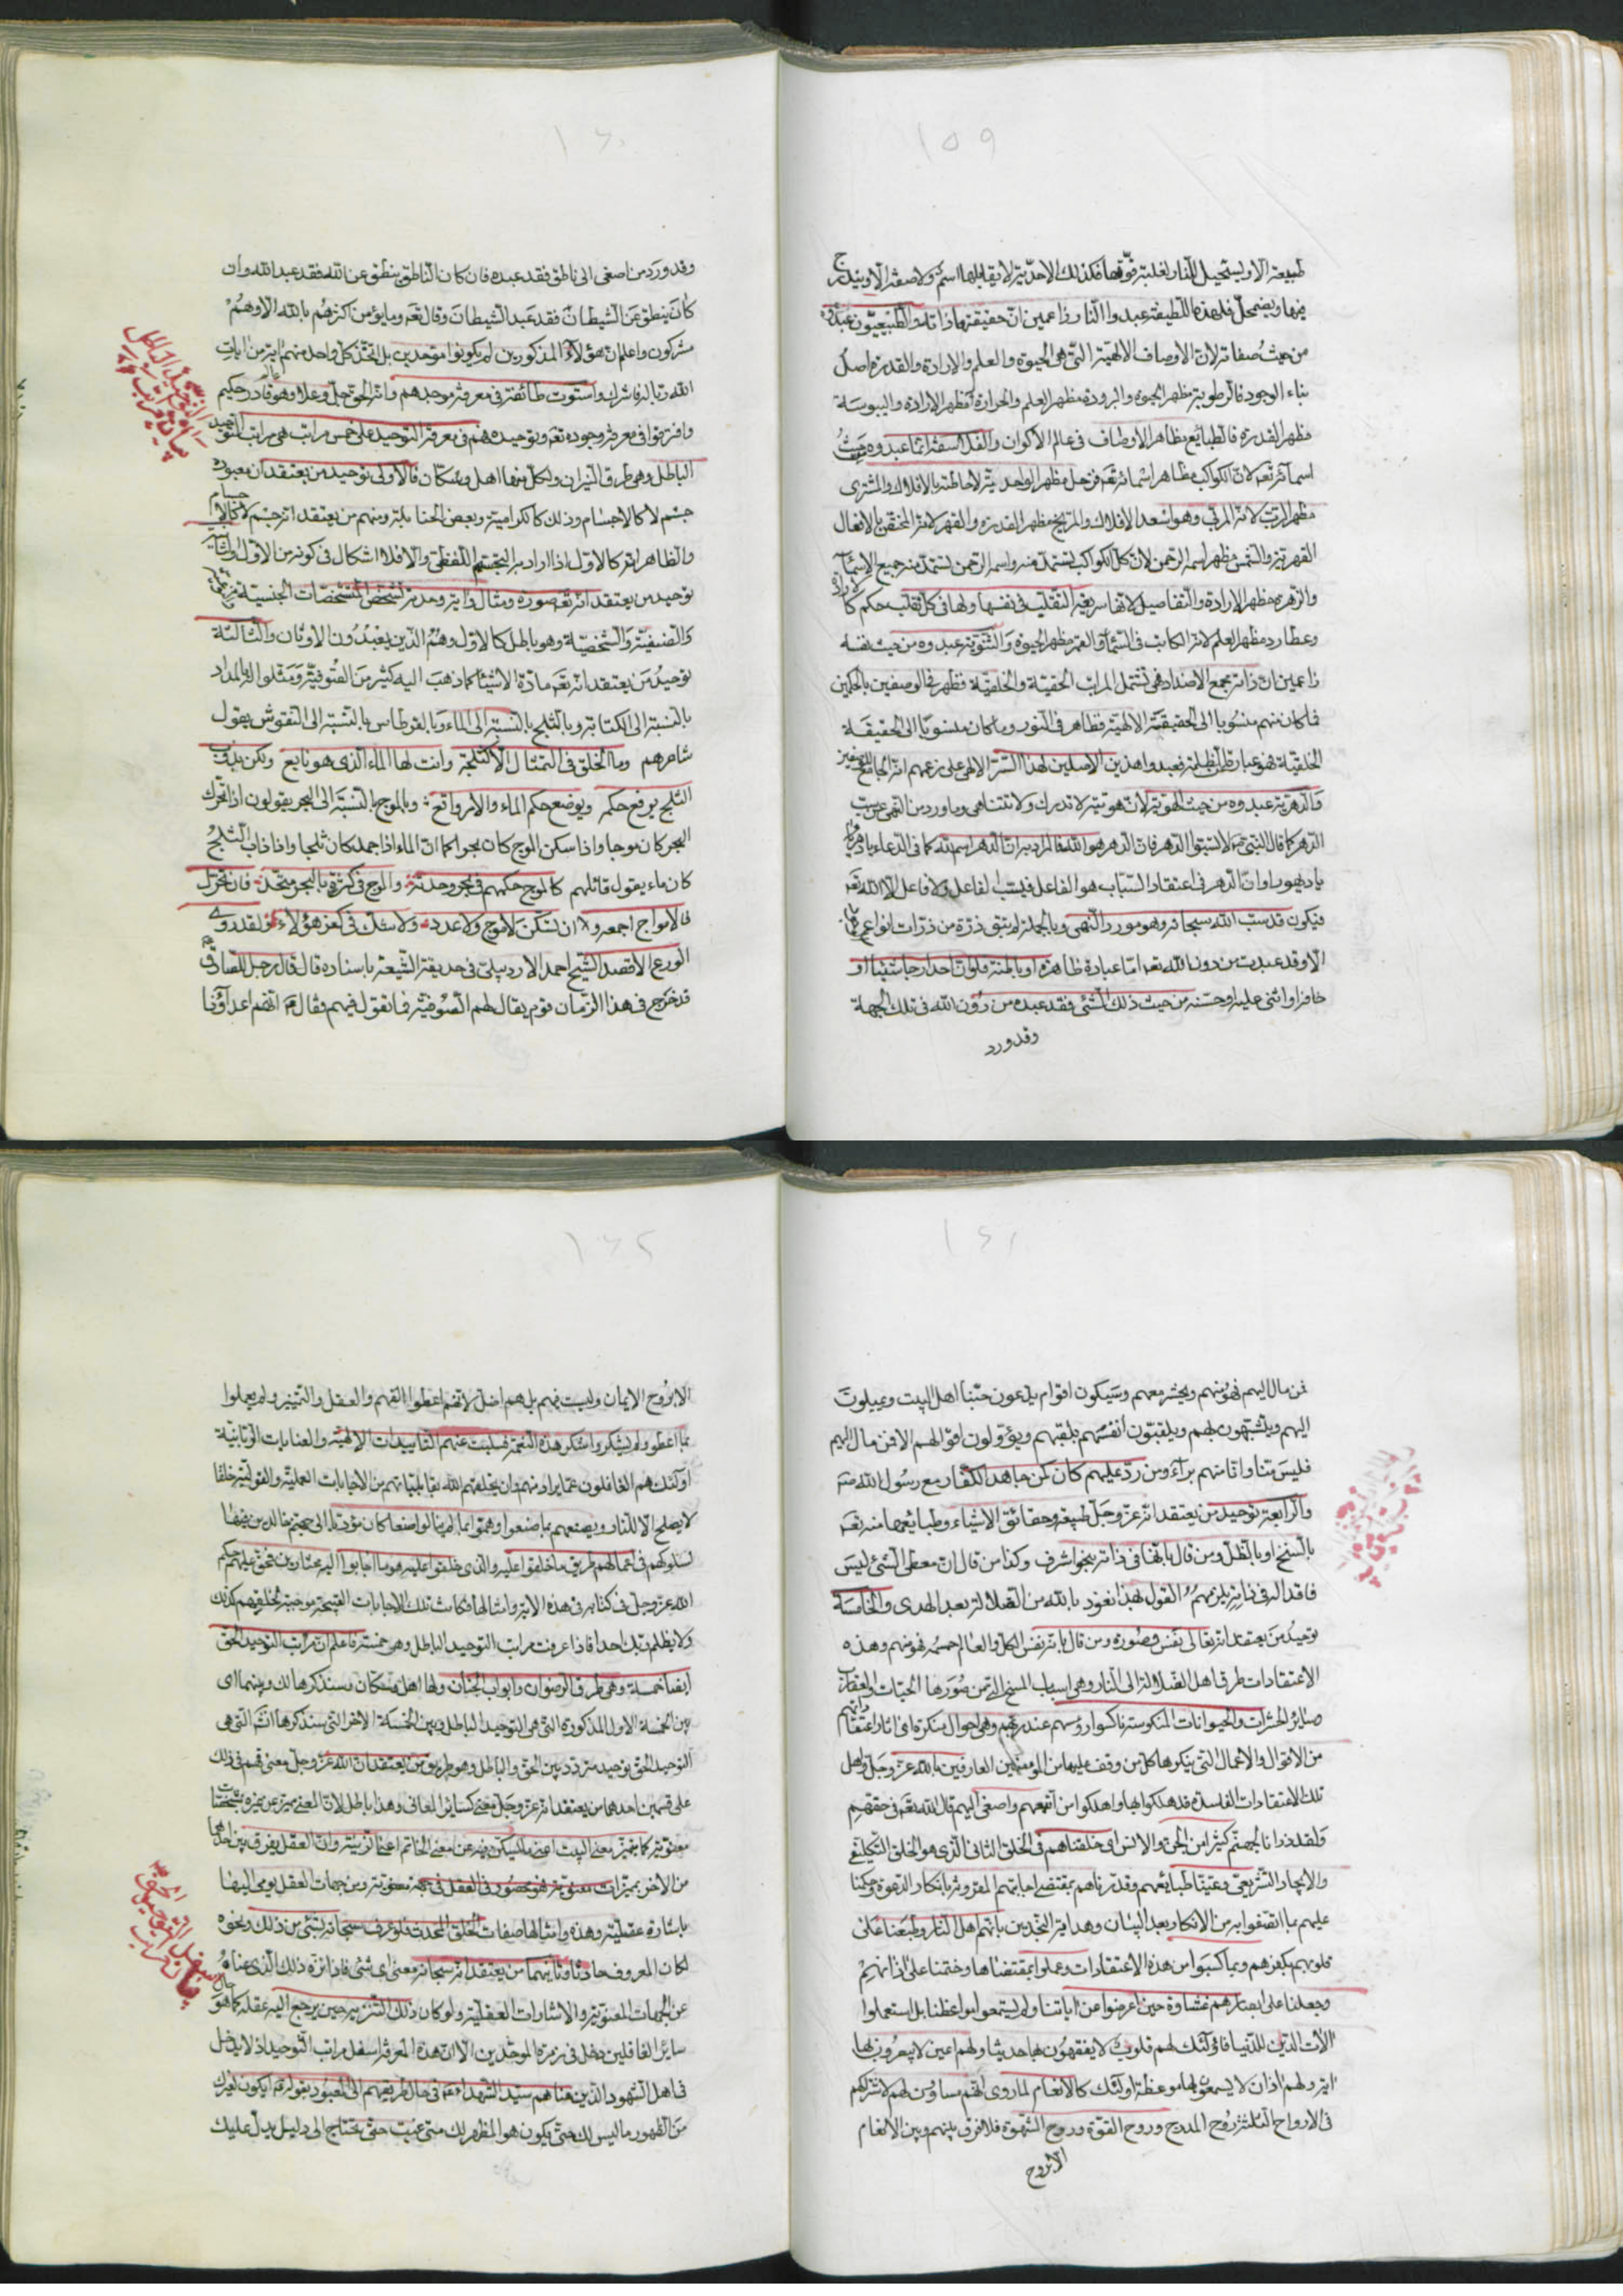 ١٥٩
طبيعة الا ويستحيل للنار لغلبة قوّتها فكذلك الاحديّة لا يقابلها اسم ولا صفة الّا ويندرج
فيها ويضمحل فلهذه اللطيفة عبدوا النار زاعمين انّ حقيقتها ذاته والطّبيعيّون عبدوه
من حيث صفاته لان الاوصاف الالهيّة التى هى الحيوة والعلم والارادة والقدرة اصل
بناء الوجود فالرطوبة مظهر الحيوة والبرودة مظهر العلم والحرارة مظهر الارادة واليبوسة
مظهر القدرة فالطبائع مظاهر الاوصاف فى عالم الاكوان والفلاسفة انّما عبدوه من حيث
اسمائه تعه لان الكواكب مظاهر اسمائه تعه فزحل مظهر الواحديّة لاحاطته بالافلاك والمشترى
مظهر الربّ لانه المربّى وهو اسعد الافلاك والمريخ مظهر القدرة والقهر لانه المختصّ بالافعال
القهريّة والشمس مظهر اسمه الرّحمن لانّ كلّ الكواكب تستمدّ منه واسمه الرّحمن تستمدّ منه جميع الاسماء
والزهرة مظهر الارادة والتفاصيل لانّها سريعة التقلّب فى نفسها ولها فى كلّ تقلب حكم كالارادة
وعطارد مظهر العلم لانه الكاتب فى السّماء والقمر مظهر الحيوة والثنويّة عبدوه من حيث نفسه
زاعمين انّ ذاته يجمع الاضداد فهى تشتمل المراتب الحقيّة والخلقيّة فظهر فى الوصفين بالحكمين
فما كان منهم منسوبا الى الحقيقة الالهيّة فظاهر فى النور وما كان منسوبا الى الحقيقة
الخلقيّة فهو عبارة عن الظلمة فعبدوا هذين الاصلين لهذا السّرّ الالهى على زعمهم انّه الجامع للوصفين
والدّهريّة عبدوه من حيث الهويّة لانّ هويّته لا تدرك ولا تتناهى وما ورد من النّهى عن سبّ
الدّهر كما قال النبى ص لا تسبّوا الدهر فانّ الدّهر هو الله فالمراد به انّ الدّهر اسم الله كما فى الدّعاء يا دهر
يا ديهور او انّ الدهر فى اعتقاد السّبّاب هو الفاعل فيسبّ الفاعل ولا فاعل الّا الله تعه
فيكون قد سبّ الله سبحانه وهو مورد النّهى وبالجملة لم يبق ذرّة من ذرّات انواع
الّا وقد عبدت من دون الله تعه امّا عبادة ظاهرة او باطنة فلو انّ احدا رجا شيئا او
خافه او اثنى عليه او حسّنه من حيث ذلك الشّئ فقد عبده من دون الله فى تلك الجهة
وقد ورد
١٦٠
وقد ورد من اصغى الى ناطق فقد عبده فان كان النّاطق ينطق عن الله فقد عبد الله وان
كان ينطق عن الشيطان فقد عبد الشيطان وقال تعه وما يؤمن اكثرهم بالله الا وهم
مشركون واعلم ان هؤلاء المذكورين لم يكونوا موحدين بل اتّخذ كلّ واحد منهم اية من ايات
الله ربّا له فاشرك واستوت طائفة فى معرفة موجدهم وانّه الحق جلّ وعلا وهو قادر حكيم
وافترقوا فى معرفة وجوده تعه وتوحيده فهم فى معرفة التوحيد على خمس مراتب هى مراتب التوحيد
الباطل وهى طرق النيران ولكلّ منها اهل وسكّان فالاولى توحيد من يعتقد ان معبوده
جسم لا كالاجسام وذلك كالكراميّة وبعض الحنابلة ومنهم من يعتقد انّه جسم كالاجسام
والظاهر انّه كالاوّل اذا اراد به التجسّم اللفظى والّا فلا اشكال فى كونه من الاوّل والثانية
توحيد من يعتقد انّه تعه صورة ومثال وانّه وحدته لتشخّص المتشخّصات الجنسيّة
والصّنفيّة والشّخصيّة وهو باطل كالاول وهم الّذين يعبدون الاوثان والثّالثة
توحيد من يعتقد انّه تعه مادّة الاشياء كما ذهب اليه كثير من الصّوفيّة ومثلوا له بالمداد
بالنسبة الى الكتابة وبالثلج بالنسبة الى الماء وبالقرطاس بالنسبة الى النقوش يقول
شاعرهم وما الخلق فى التمثال الّا كثلجة وانت لها الماء الذى هو نابع ولكن بذوب
الثّلج يرفع حكمه ويوضع حكم الماء والامر واقع وبالموج بالنسبة الى البحر يقولون اذا تحرّك
البحر كان موجا واذا سكن الموج كان بحرا كما انّ الماء اذا جمد كان ثلجا واذا ذاب الثّلج
كان ماء يقول قائلهم كالموج حكمهم فى بحر وحدته والموج فى كثرة بالبحر متّحد فان تحرّك
فالامواج اجمعه وان تسكّن لا موج ولا عدد ولا شك فى كفر هؤلاء ولقد روى
الورع الاقصد الشّيخ احمد الاردبيلى فى حديقة الشّيعة باسناده قال قال رجل للصادق ع
قد خرج فى هذا الزّمان قوم يقال لهم الصّوفيّة فما تقول فيهم فقال ع انّهم اعداؤنا
١٦١
فمن مال اليهم فهو منهم ويحشر معهم وسيكون اقوام يدّعون حبّنا اهل البيت ويميلون
اليهم ويتشبهون بهم ويلقبّون انفسهم بلقبهم ويؤوّلون اقوالهم الا فمن مال اليهم
فليس منّا وانا منهم براء ومن ردّ عليهم كان كمن جاهد الكفّار مع رسول الله ص
والرّابعة توحيد من يعتقد انّه عزّ وجلّ طبيعة وحقائق الاشياء وطبايعها منه تعه
بالسنخ او بالظلّ ومن قال بانّها فى ذاته بنحو اشرف وكذا من قال ان معطى الشّئ ليس
فاقدا له فى ذاته يلزمهم القول بهذا نعوذ بالله من الضّلالة بعد الهدى والخامسة
توحيد من يعتقد انّه تعالى نفس وصورة ومن قال بانّه نفس الكلّ والعالم جسمه فهو منهم وهذه
الاعتقادات طرق اهل الضّلالة الى النّار وهى اسباب المسخ الّتى من صورها الحيّات والعقارب
وسائر الحشرات والحيوانات المنكوسة ناكسوا رؤسهم عند ربّهم وهى احوال منكرة اى اثار اعتقاداتهم
من الاقوال والاعمال التى ينكرها كل من وقف عليها من المؤمنين العارفين بالله عزّ وجلّ واهل
تلك الاعتقادات الفاسدة قد هلكوا بها واهلكوا من اتّبعهم واصغى اليهم قال الله تعه فى حقّهم
ولقد ذرانا لجهنّم كثيرا من الجنّ والانس اى خلقناهم فى الخلق الثانى الّذى هو الخلق التّكليفى
والايجاد التّشريعى وعيّنّا طبايعهم وقدّرناهم بمقتضى اجابتهم المقرونة بانكار الدّعوة وكتبنا
عليهم بما اتّصفوا به من الانكار بعد البيان وهداية النّجدين بانّهم اهل النّار وطبعنا على
قلوبهم بكفرهم وبما كسبوا من هذه الاعتقادات وعملوا بمقتضاها وختمنا على اذانهم
وجعلنا على ابصارهم غشاوة حين اعرضوا عن اياتنا ولم يستمعوا مواعظنا بل استعملوا
الات الدّين للدّنيا فاولئك لهم قلوب لا يفقهون بها حديثا ولهم اعين لا يبصرون بها
اية ولهم اذان لا يسمعون بها موعظة اولئك كالانعام لما روى انّهم مساوون لهم لاشتراكهم
فى الارواح الثلثة روح المدرج وروح القوّة وروح الشهوة فلا فرق بينهم وبين الانعام
الا بروح
١٦٢
الا بروح الايمان وليست فيهم بل هم اضل لانّهم اعطوا الفهم والعقل والتّمييز ولم يعملوا
بما اعطوا ولم يشكروا شكر هذه النّعمة فسلبت عنهم التّاييدات الالهيّة والعنايات الرّبانيّة
اولئك هم الغافلون عمّا يراد منهم وان يخلقهم الله بقابليّاتهم من الاجابات العمليّة والقوليّة خلقا
لا يصلح الّا للنّار ويصنعهم بما صنعوا وهمّوا بما لم ينالوا صنعا كان مؤدّيا الى جهنّم خالدين فيها
لسلوكهم فى اعمالهم طريق ما خلقوا عليه والّذى خلقوا عليه هو ما اجابوا اليه مختارين فحقّ عليهم حكم
الله عزّ وجلّ فى كتابه فى هذه الاية وامثالها فكانت تلك الاجابات القبيحة موجبة لخلقهم كذلك
ولا يظلم ربّك احدا فاذا عرفت مراتب التوحيد الباطل وهى خمسة فاعلم ان مراتب التوحيد الحق
ايضا خمسة وهى طرق الرضوان وابواب الجنان ولها اهل وسكّان وسنذكرها لك وبينهما اى
بين الخمسة الاول المذكورة التى هى التوحيد الباطل وبين الخمسة الاخر التى سنذكرها انّها هى
التوحيد الحق توحيد متردّد بين الحق والباطل وهو طريق من يعتقد انّ الله عزّ وجلّ معنى فهم فى ذلك
على قسمين احدهما من يعتقد انّه عزّ وجلّ معنى كسائر المعانى وهذا باطل لان المعنى متميّز عن غيره بمشخصات
معنويّة كما يتميّز معنى البيت عن معنى الخاتم وانّ العقل يفرق بين احدهما
من الاخر بمميزات معنويّة فهو محصور فى العقل فى جهة معنويّة ومن جهات العقل يومى اليها
باشارة عقليّة وهذه وامثالها صفات الخلق المحدث فلو عرف سبحانه بشئ من ذلك ونحوه
لكان المعروف حادثا وثانيهما من يعتقد انّه سبحانه معنى اى شئ فاذا نزّه ذلك الّذى عناه
عن الجهات المعنويّة والاشارات العقليّة ولو كان ذلك التّنزيه حين يرجع اليه عقله كما هو حال
سائر الغافلين دخل فى زمرة الموحّدين الّا انّ هذه المعرفة اسفل مراتب التّوحيد اذ لا يدخل
فى اهل الشّهود الّذين عناهم سيّد الشّهداء ع فى حال طريقهم الى المعبود بقوله ع ايكون لغيرك
من الظهور ما ليس لك حتّى يكون هو المظهر لك متى غبت حتّى تحتاج الى دليل يدلّ عليك